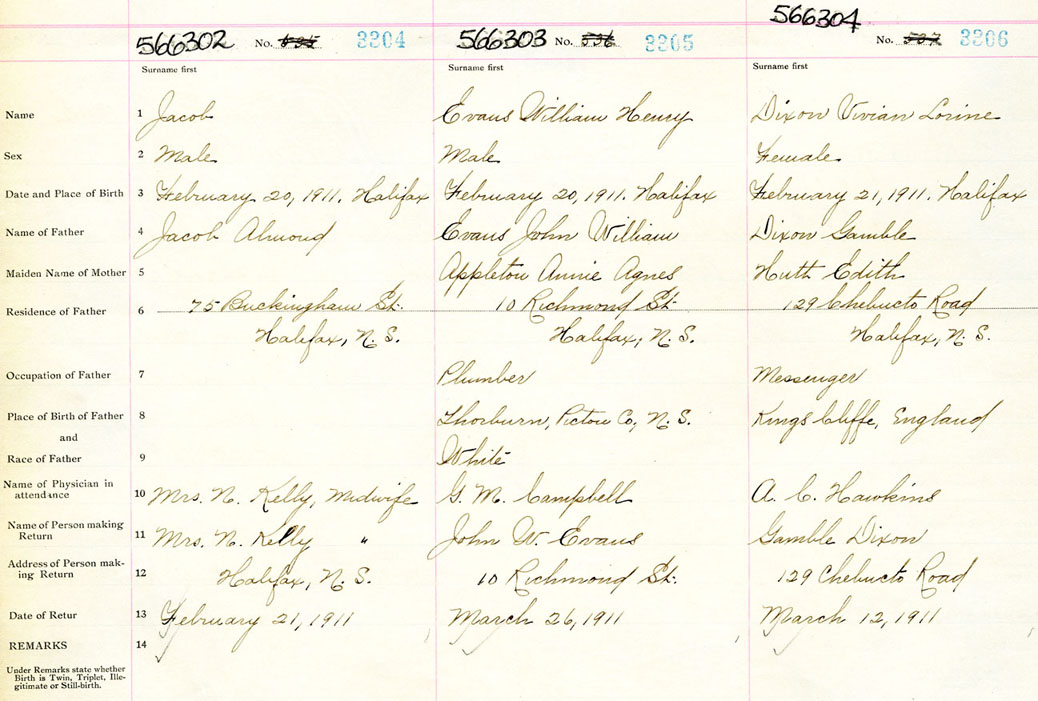 566302 No. 3304 566303 No. 536 3305 566304 No. 537 3306
Surname first Surname first Surname first
Name 1 Jacob Evans William Henry Dixon Vivian Lorine
Sex 2 Male Male Female
Date and Place of Birth 3 February 20, 1911. Halifax February 20, 1911. Halifax February 21, 1911. Halifax
Name of Father 4 Jacob Almond Evans John William Dixon Gamble
Maiden Name of Mother 5 Appleton Annie Agnes Huth Edith
Residence of Father 6 75 Buckingham St. 10 Richmond St. 129 Chebucto Road
Halifax, N. S. Halifax, N. S. Halifax, N. S.
Occupation of Father 7 Plumber Messenger
Place of Birth of Father 8 Thorburn, Pictou Co, N. S. Kings Cliffe, England
and
Race of Father 9 White
Name of Physician in
attendance 10 Mrs. N. Kelly, Midwife G. M. Campbell A. C. Hawkins
Name of Person making
Return 11 Mrs. N. Kelly " John W. Evans Gamble Dixon
Address of Person mak-
ing Return 12 Halifax, N. S. 10 Richmond St. 129 Chebucto Road
Date of Retur 13 February 21, 1911 March 26, 1911 March 12, 1911
REMARKS 14
Under Remarks state whether
Birth is Twin, Triplet, Ille-
gitimate or Still-birth.